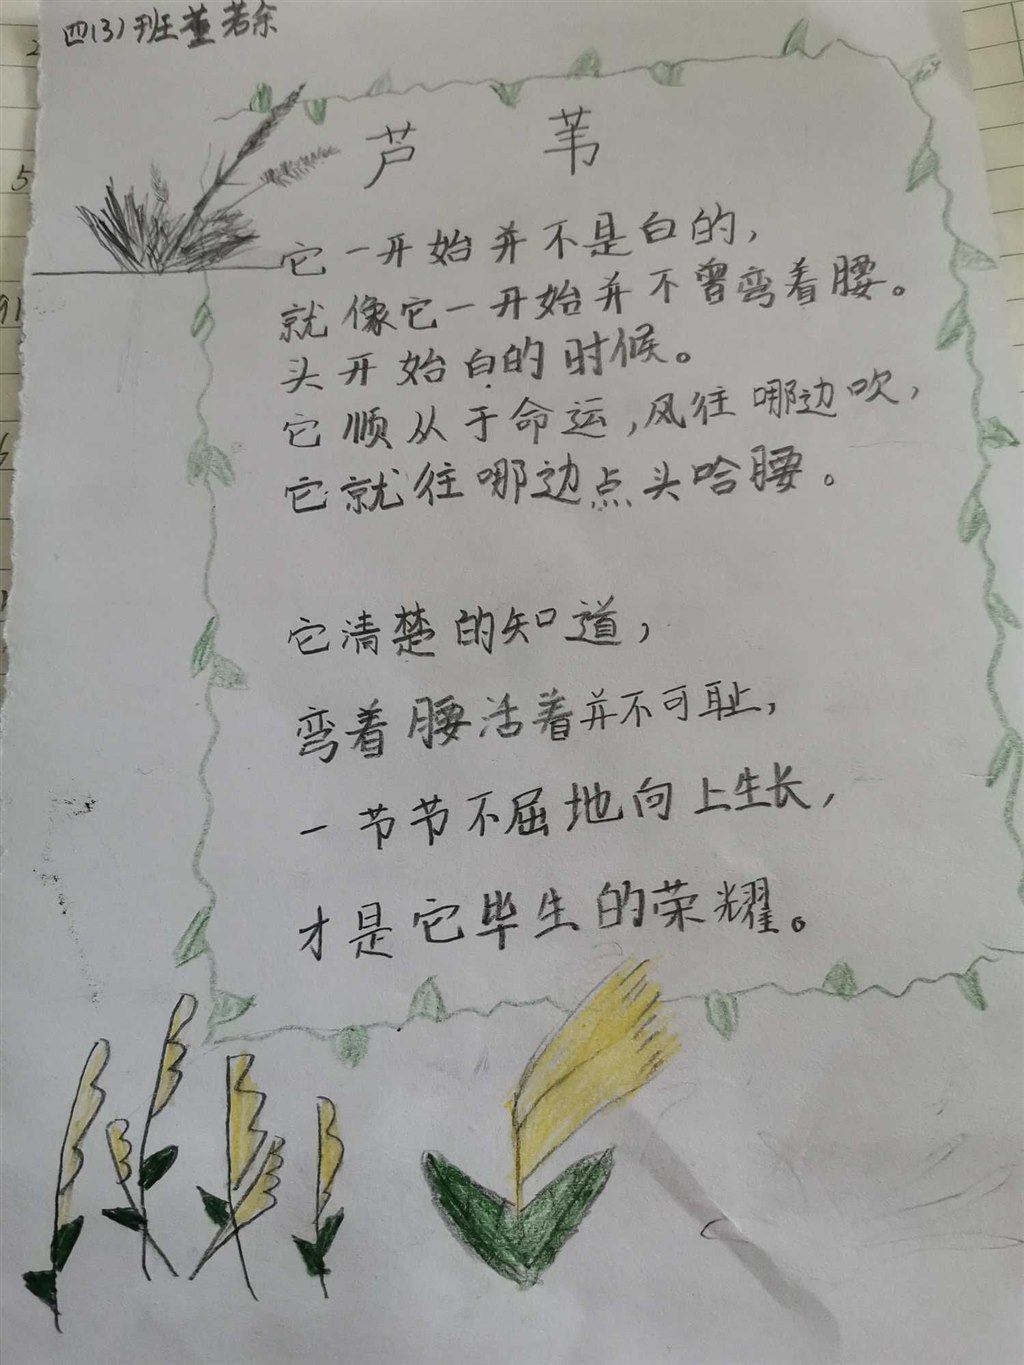 四(3)班董若余
芦 苇
它一开始并不是白的，
就像它一开始并不曾弯着腰。
头开始白的时候。
它顺从于命运，风往哪边吹，
它就往哪边点头哈腰。
它清楚的知道，
弯着腰活着并不可耻，
一节节不屈地向上生长，
才是它毕生的荣耀。